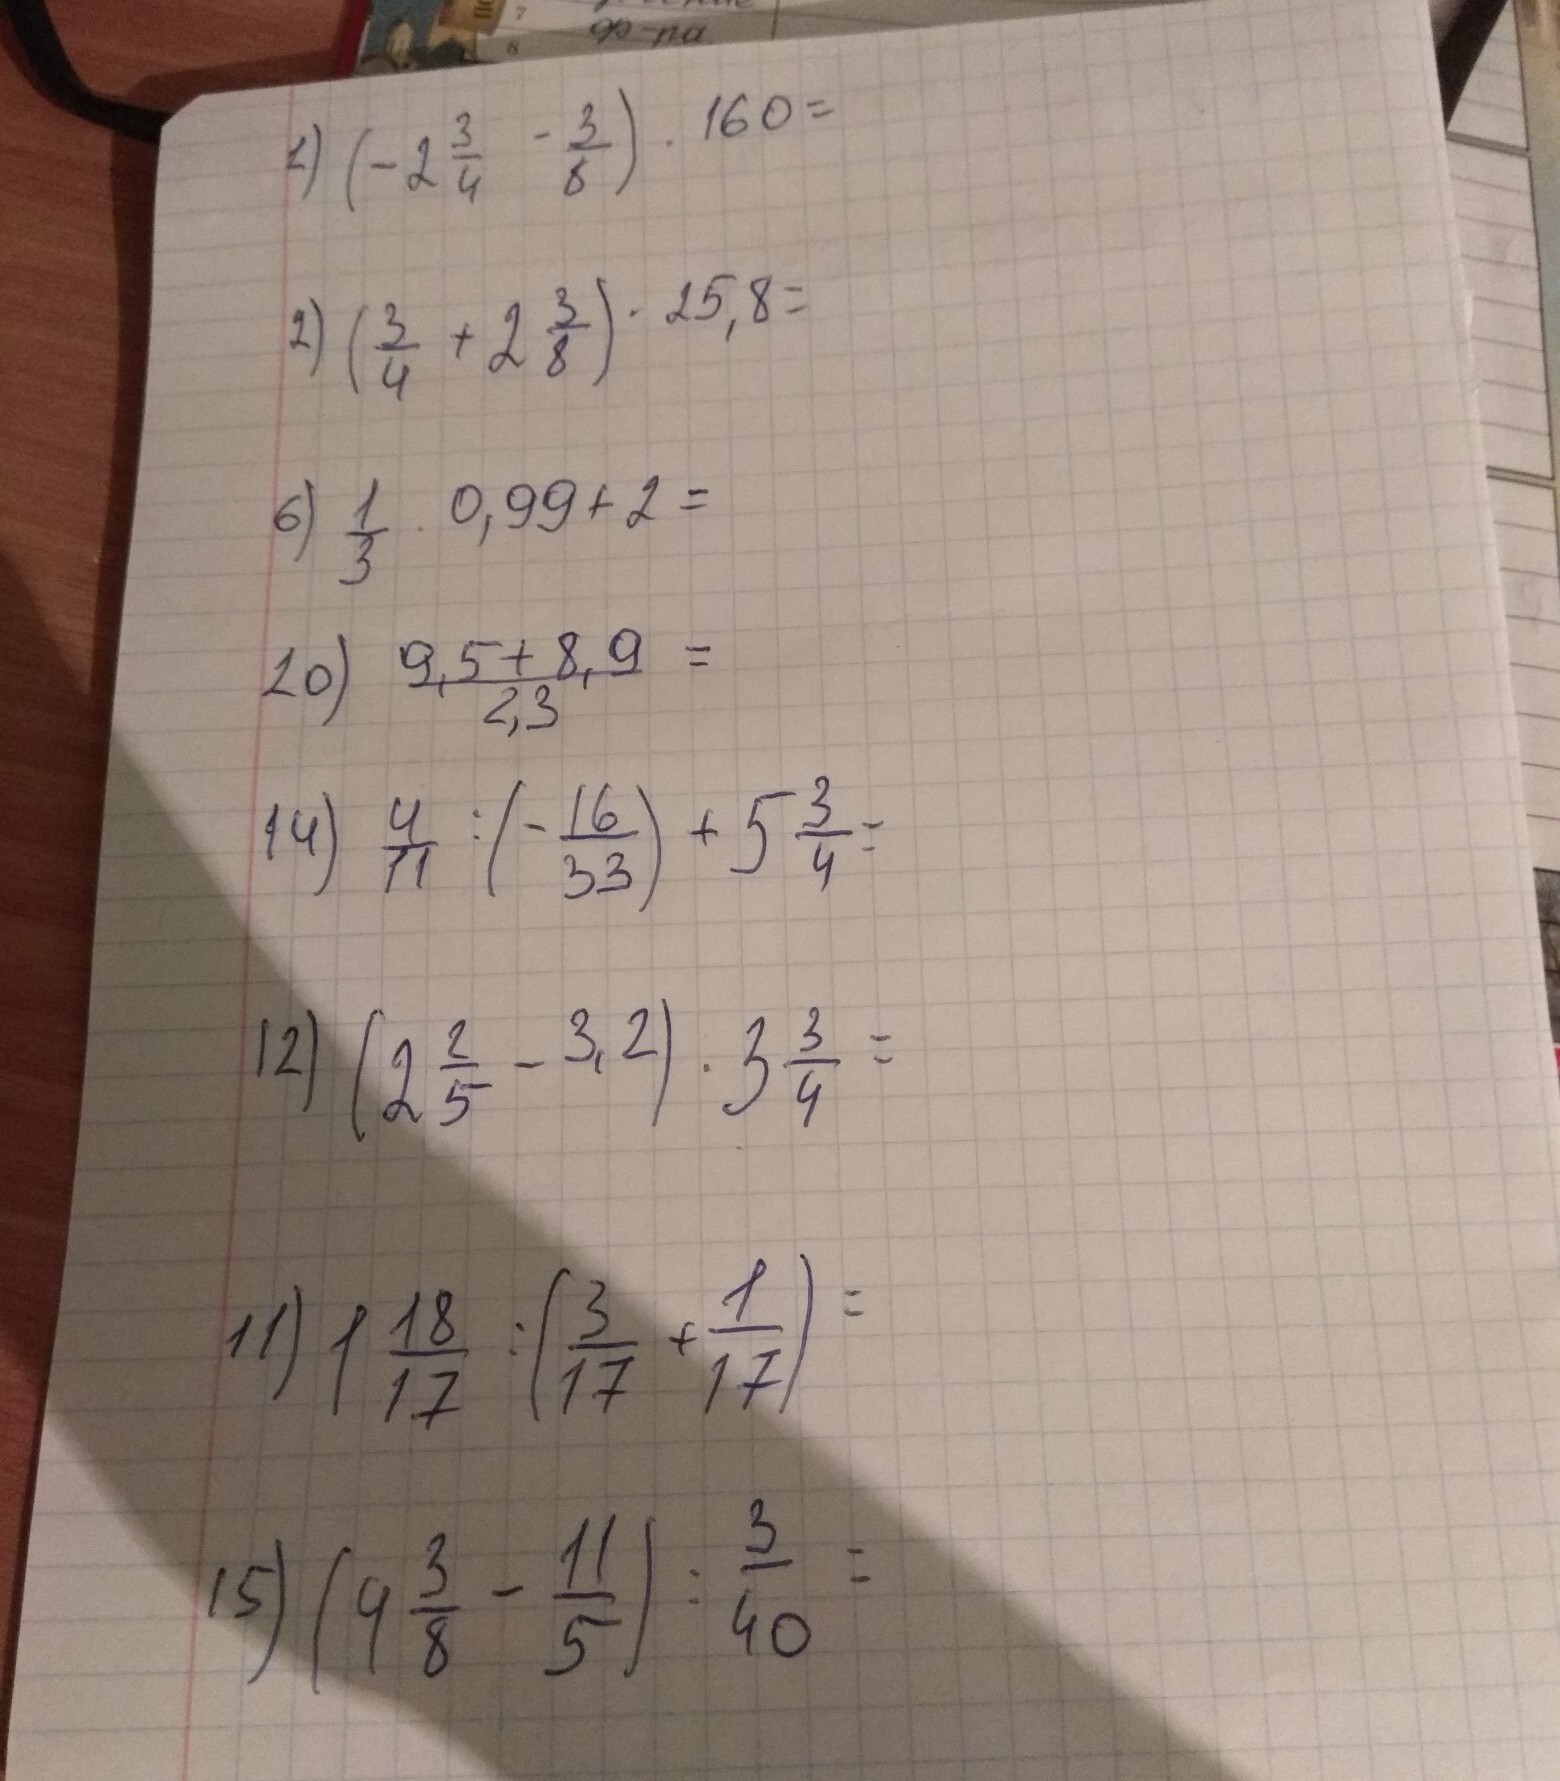 7
8
ф-ла
1) (-2 3/4 - 3/8) · 160 =
2) (3/4 + 2 3/8) · 25,8 =
6) 1/3 · 0,99 + 2 =
10) (9,5 + 8,9)/2,3 =
14) 4/11 : (-16/33) + 5 3/4 =
12) (2 2/5 - 3,2) · 3 3/4 =
11) 1 18/17 : (3/17 + 1/17) =
15) (4 3/8 - 11/5) : 3/40 =